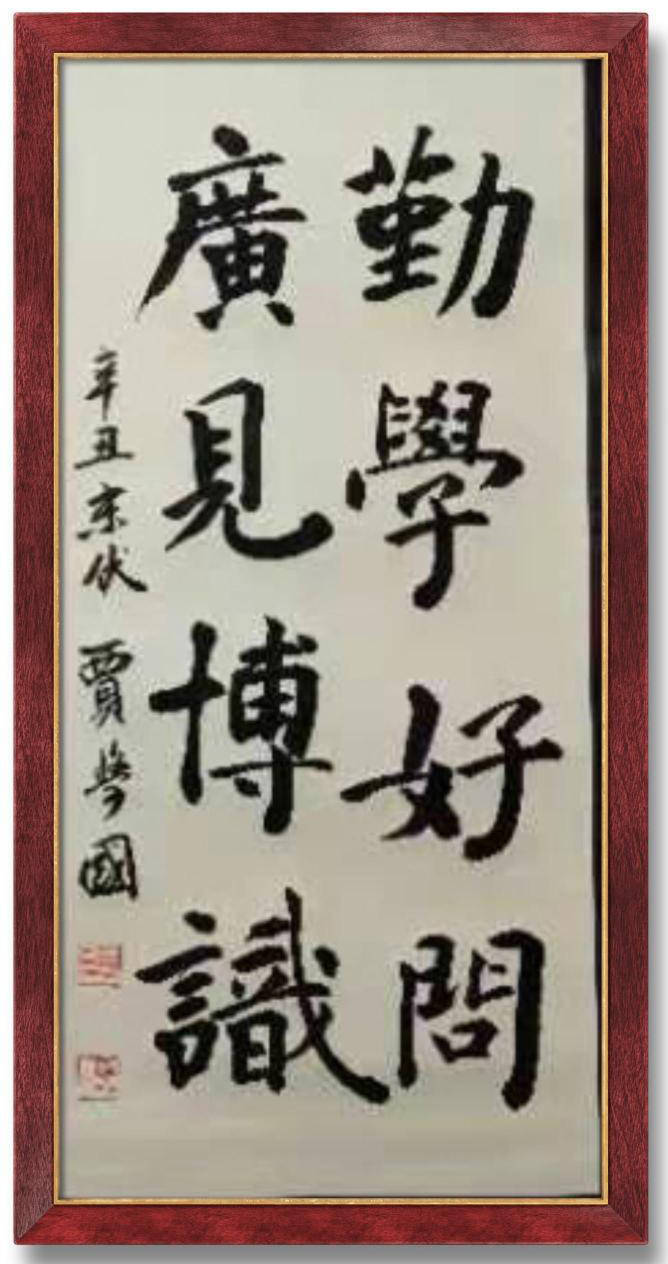 勤學好問
廣見博識
辛丑末伏 賈學國